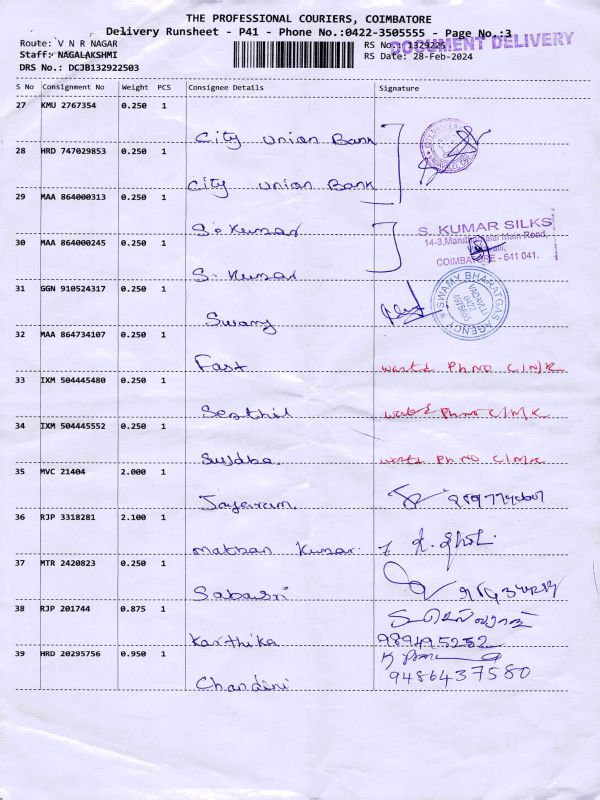 THE PROFESSIONAL COURIERS, COIMBATORE
Delivery Runsheet - P41 - Phone No.:0422-3505555 - Page No.:3
Route: V N R NAGAR
RS No.: 1329225
DOCUMENT DELIVERY
Staff: NAGALAKSHMI
RS Date: 28-Feb-2024
DRS No.: DCJB132922503
S No Consignment No Weight PCS Consignee Details Signature
27 KMU 2767354 0.250 1
City Union Bank
28 HRD 747029853 0.250 1
City Union Bank
29 MAA 864000313 0.250 1
S. Kumar
S. KUMAR SILKS
30 MAA 864000245 0.250 1
S. Kumar
COIMBATORE - 641 041.
31 GGN 910524317 0.250 1
Swamy
SWAMY BHARATGAS AGENCY
VADAVALLI
32 MAA 864734107 0.250 1
Fast
Ph NO C/N/R
33 IXM 504445480 0.250 1
Senthil
Ph no C/N/R
34 IXM 504445552 0.250 1
Ph NO C/N/R
35 MVC 21404 2.000 1
Jayaram.
36 RJP 3318281 2.100 1
Kumar.
37 MTR 2420823 0.250 1
Sabasri
38 RJP 201744 0.875 1
Karthika
989495252
39 HRD 20295756 0.950 1
Chandini
9486437580